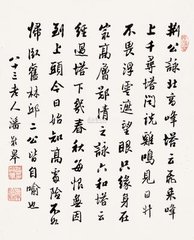 荆公詠北高峰塔云飛來峰
上千尋塔聞說雞鳴見日升
不畏浮雲遮望眼只緣身在
最高層鄭清之詠六和塔云
經過塔下幾春秋每恨無因
到上頭今日始知高處險不如
歸臥舊林邱二公皆自喻也
八十三老人潘齡皋